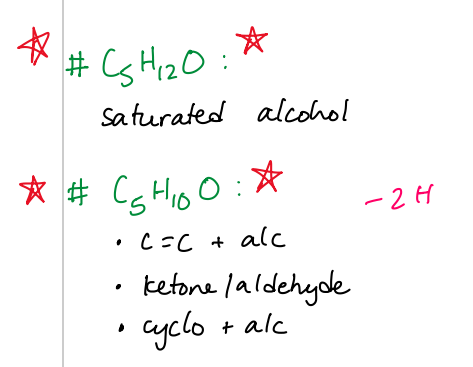 # C₅H₁₂O :
saturated alcohol
# C₅H₁₀O :
-2H
• C=C + alc
• ketone/aldehyde
• cyclo + alc